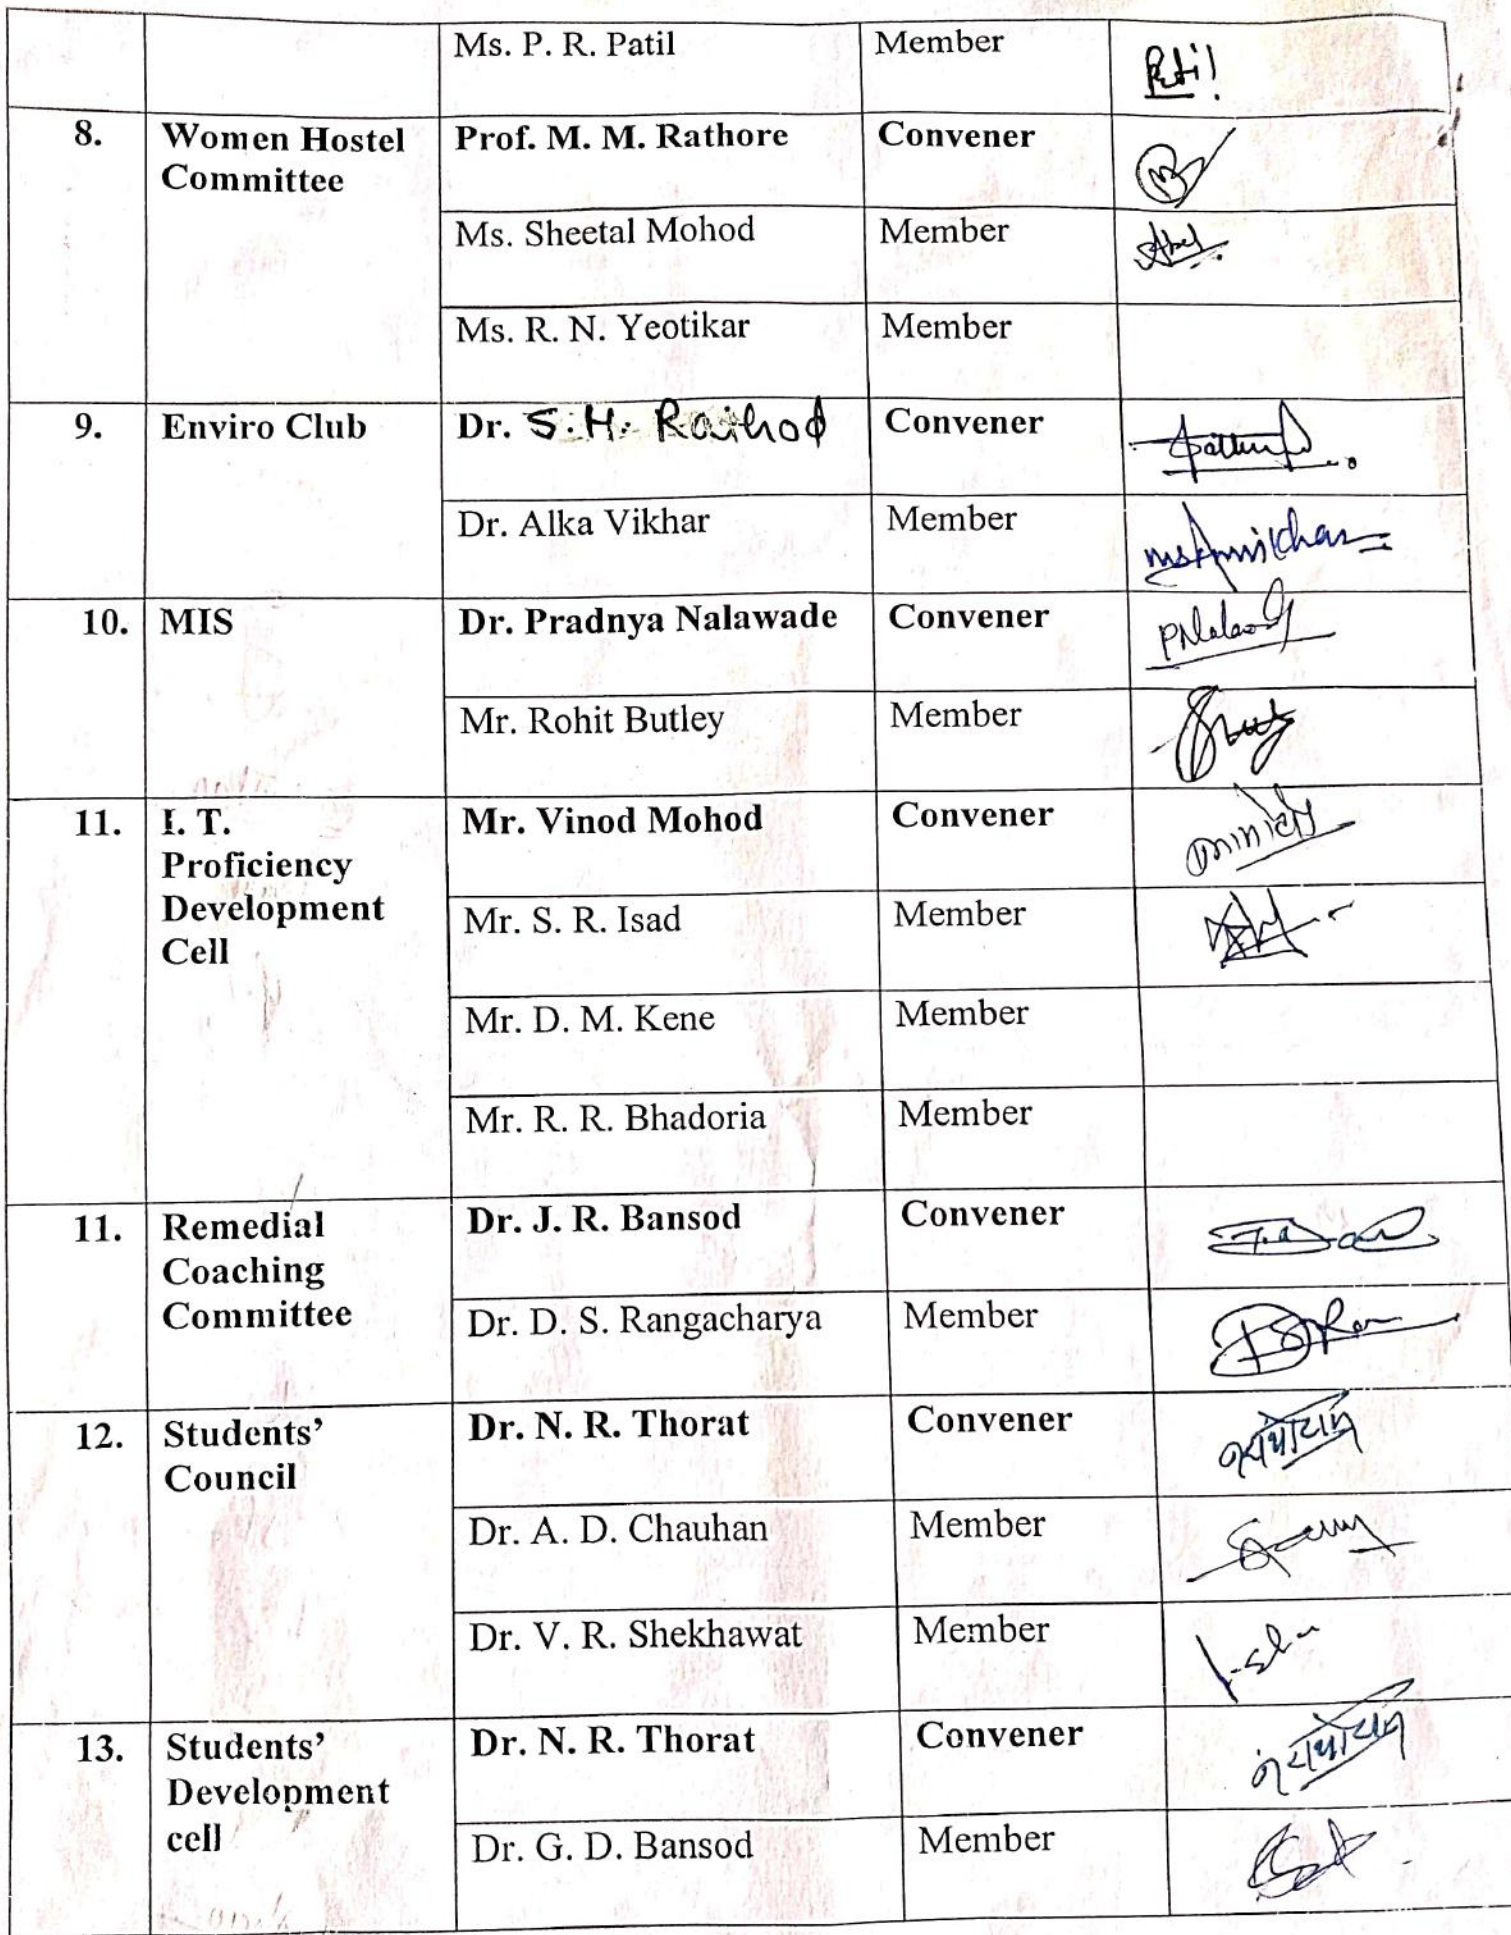 Ms. P. R. Patil Member Patil
8. Women Hostel Committee Prof. M. M. Rathore Convener
Ms. Sheetal Mohod Member
Ms. R. N. Yeotikar Member
9. Enviro Club Dr. S. H. Rathod Convener
Dr. Alka Vikhar Member
10. MIS Dr. Pradnya Nalawade Convener
Mr. Rohit Butley Member
11. I. T. Proficiency Development Cell Mr. Vinod Mohod Convener
Mr. S. R. Isad Member
Mr. D. M. Kene Member
Mr. R. R. Bhadoria Member
11. Remedial Coaching Committee Dr. J. R. Bansod Convener
Dr. D. S. Rangacharya Member
12. Students' Council Dr. N. R. Thorat Convener
Dr. A. D. Chauhan Member
Dr. V. R. Shekhawat Member
13. Students' Development cell Dr. N. R. Thorat Convener
Dr. G. D. Bansod Member